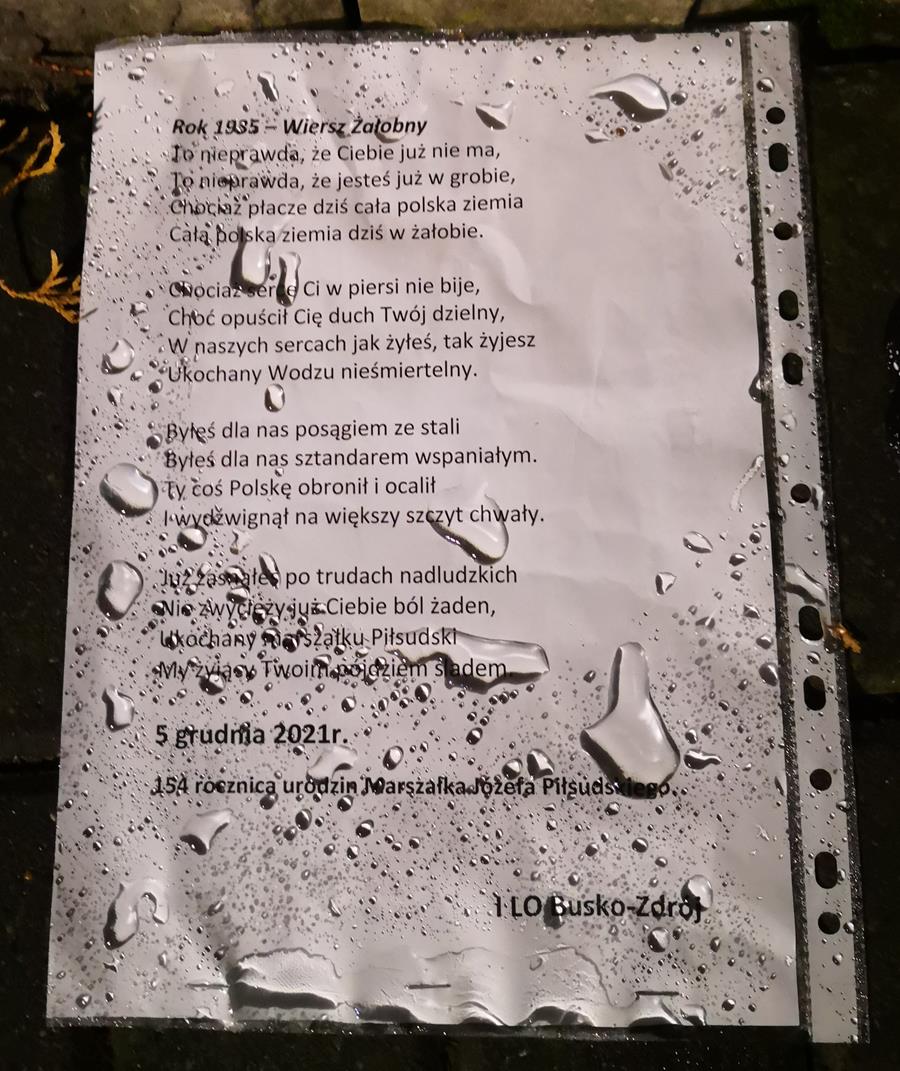 Rok 1935 – Wiersz Żałobny
To nieprawda, że Ciebie już nie ma,
To nieprawda, że jesteś już w grobie,
Chociaż płacze dziś cała polska ziemia
Cała polska ziemia dziś w żałobie.
Chociaż serce Ci w piersi nie bije,
Choć opuścił Cię duch Twój dzielny,
W naszych sercach jak żyłeś, tak żyjesz
Ukochany Wodzu nieśmiertelny.
Byłeś dla nas posągiem ze stali
Byłeś dla nas sztandarem wspaniałym.
Ty coś Polskę obronił i ocalił
I wydźwignął na większy szczyt chwały.
Już zasnąłeś po trudach nadludzkich
Nie zwycięży już Ciebie ból żaden,
Ukochany marszałku Piłsudski
My żyjąsy Twoim pójdziem śladem.
5 grudnia 2021r.
154 rocznica urodzin Marszałka Józefa Piłsudskiego..
I LO Busko-Zdrój